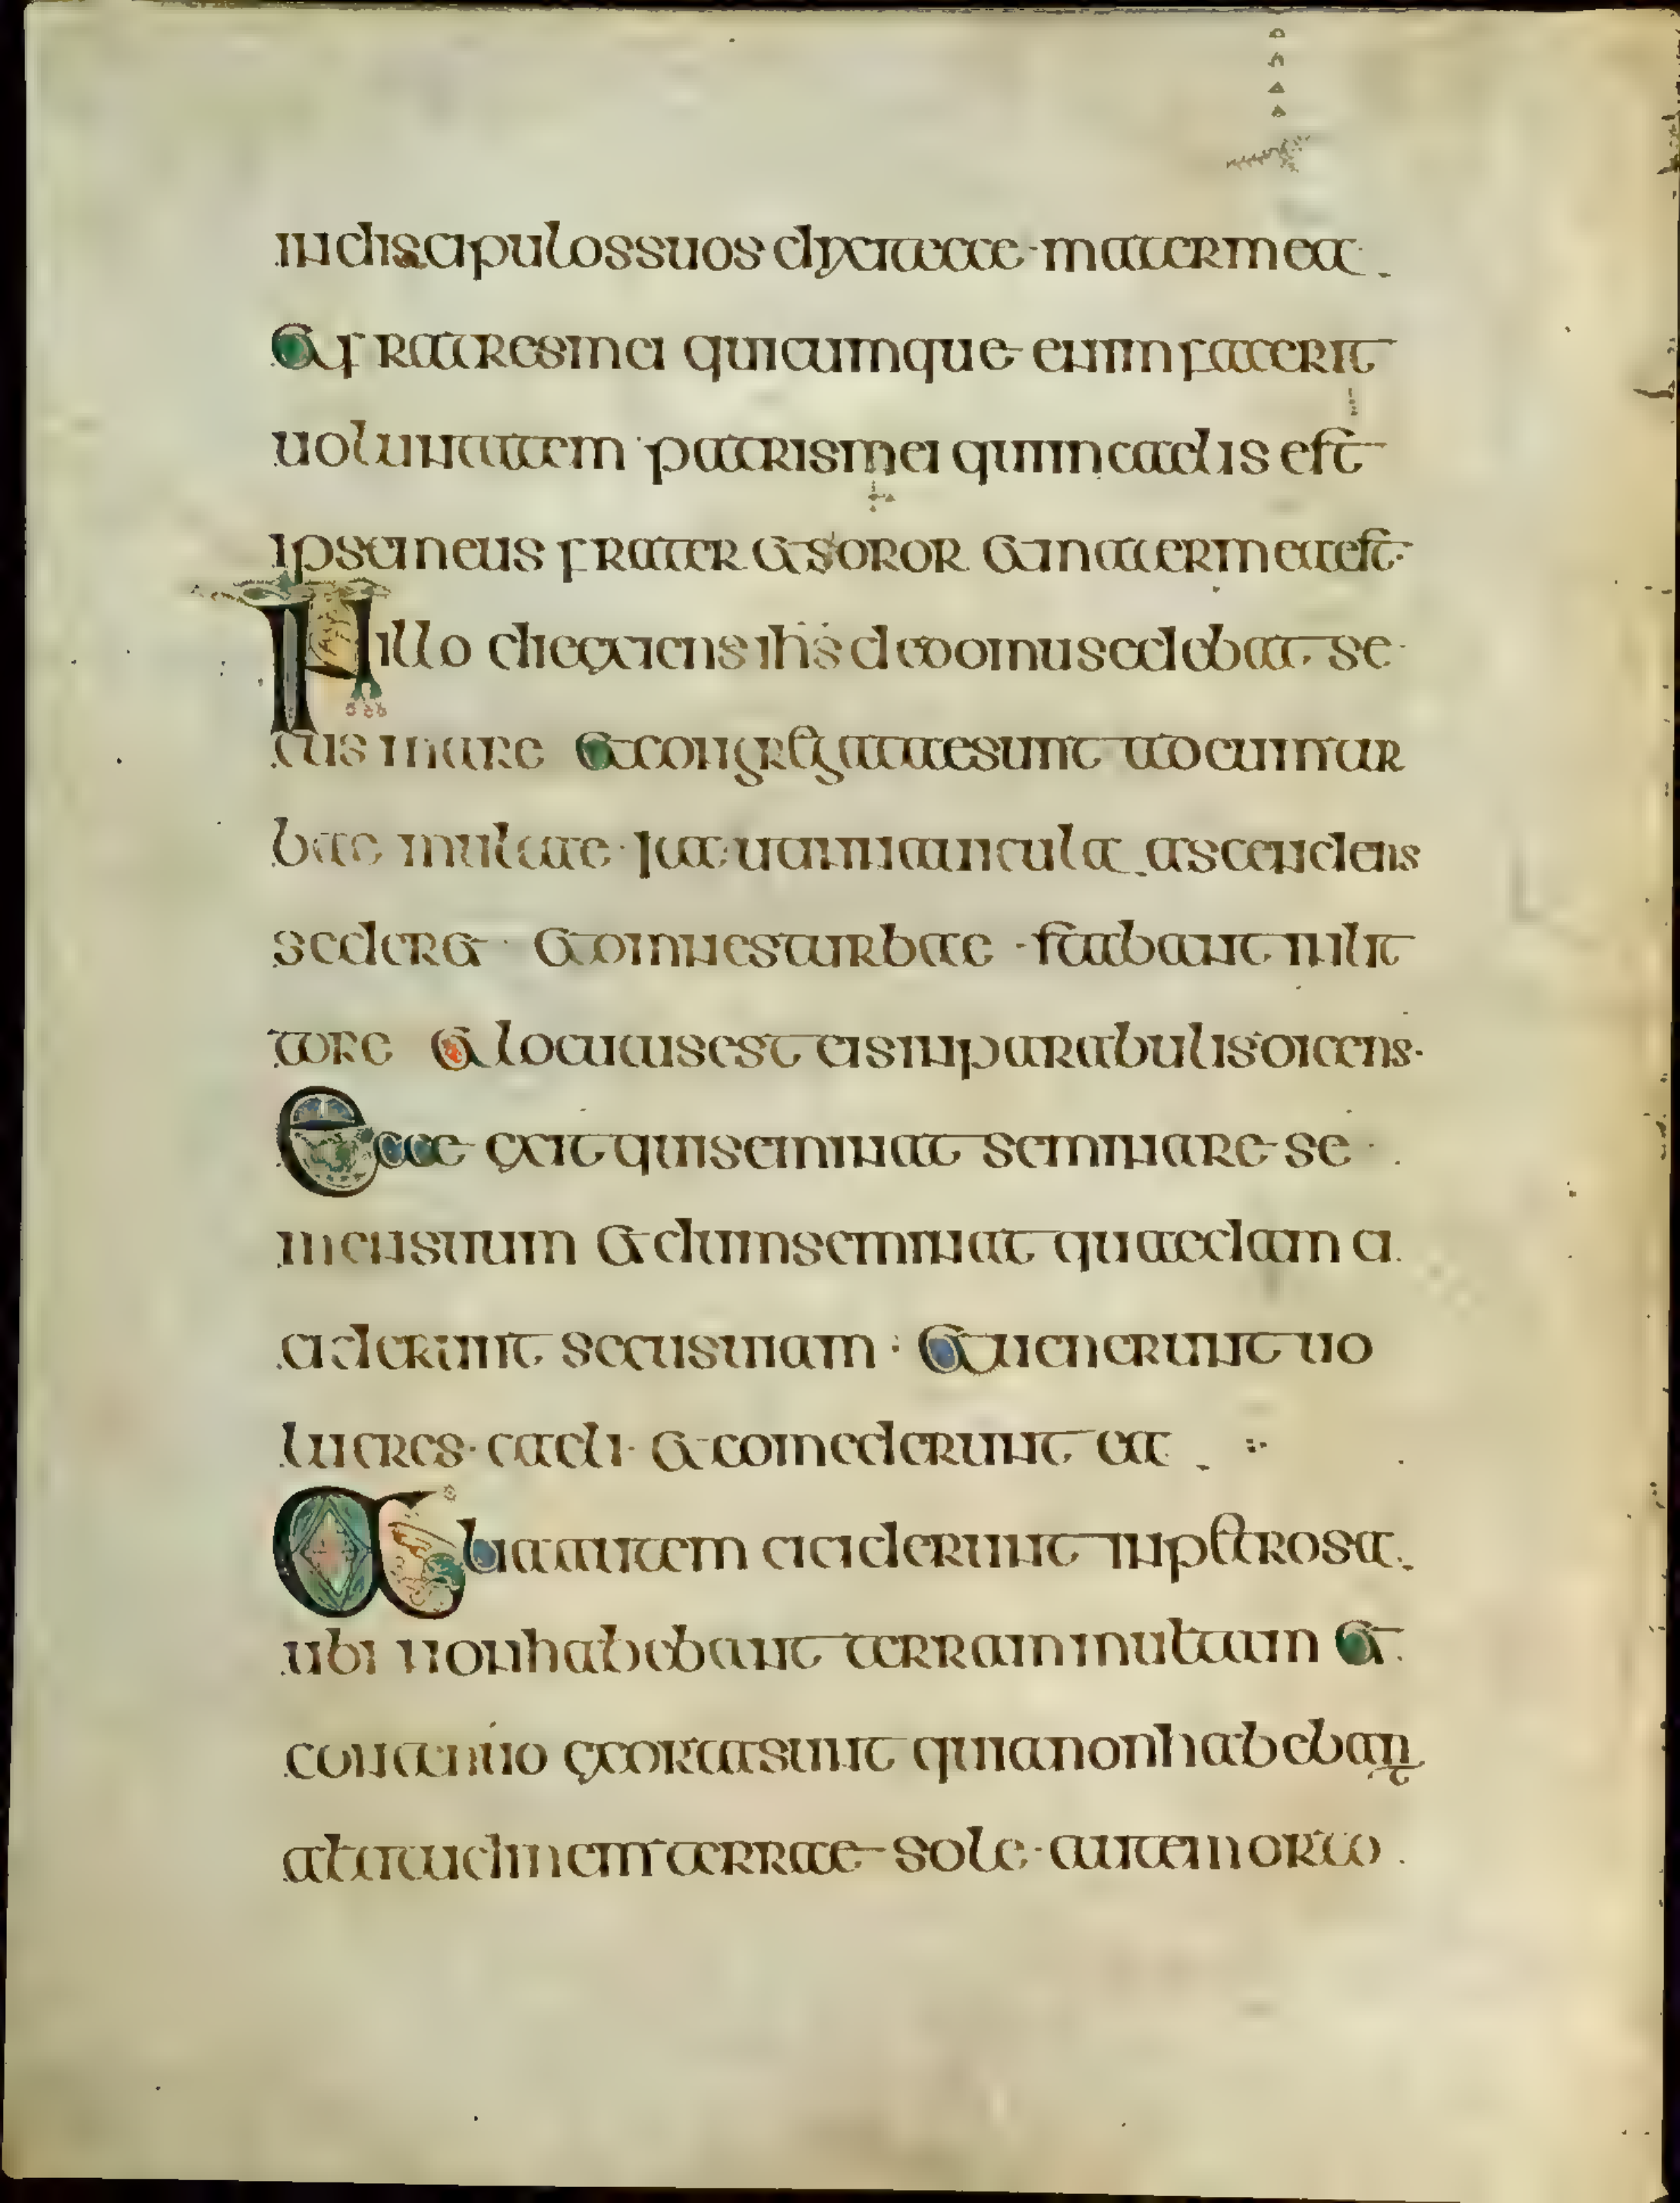 in discipulos suos dixit ecce · mater mea ·
et fratres mei quicumque enim fecerit
uoluntatem patris mei qui in caelis est
ipse meus frater et soror et mater mea est ·
In illo die exiens ihs de domu sedebat se
cus mare et congregatae sunt ad eum tur
bae multae · ita ut in nauicula ascendens
sederet · et omnes turbae · stabant in lit
tore et locutus est eis in parabulis dicens ·
Ecce exit qui seminat seminare se ·
men suum et dum seminat quaedam ci
ciderunt secus uiam · et uenerunt uo
lucres · caeli · et comederunt ea ·
Alia autem ciciderunt in petrosa ·
ubi non habebant terram multam et
continuo exorta sunt quia non habebant
altitudinem terrae sole · autem orto ·